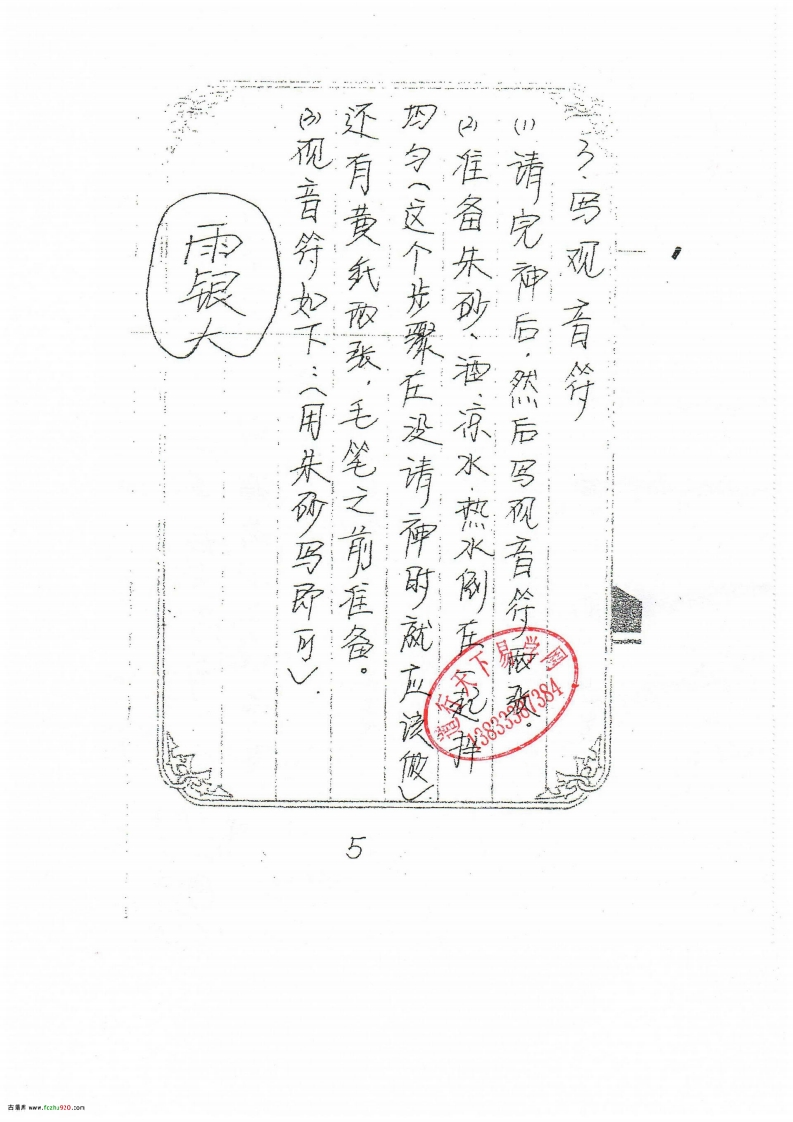 3.写观音符
(1)请完神后,然后写观音符两张。
(2)准备朱砂、酒、凉水、热水倒在一起拌
均匀(这个步骤在没请神时就应该做)
还有黄纸两张,毛笔之前准备。
(3)观音符如下:(用朱砂写即可).
雨
银
大
天下易学网
13833367384
5
www.fczhu920.com